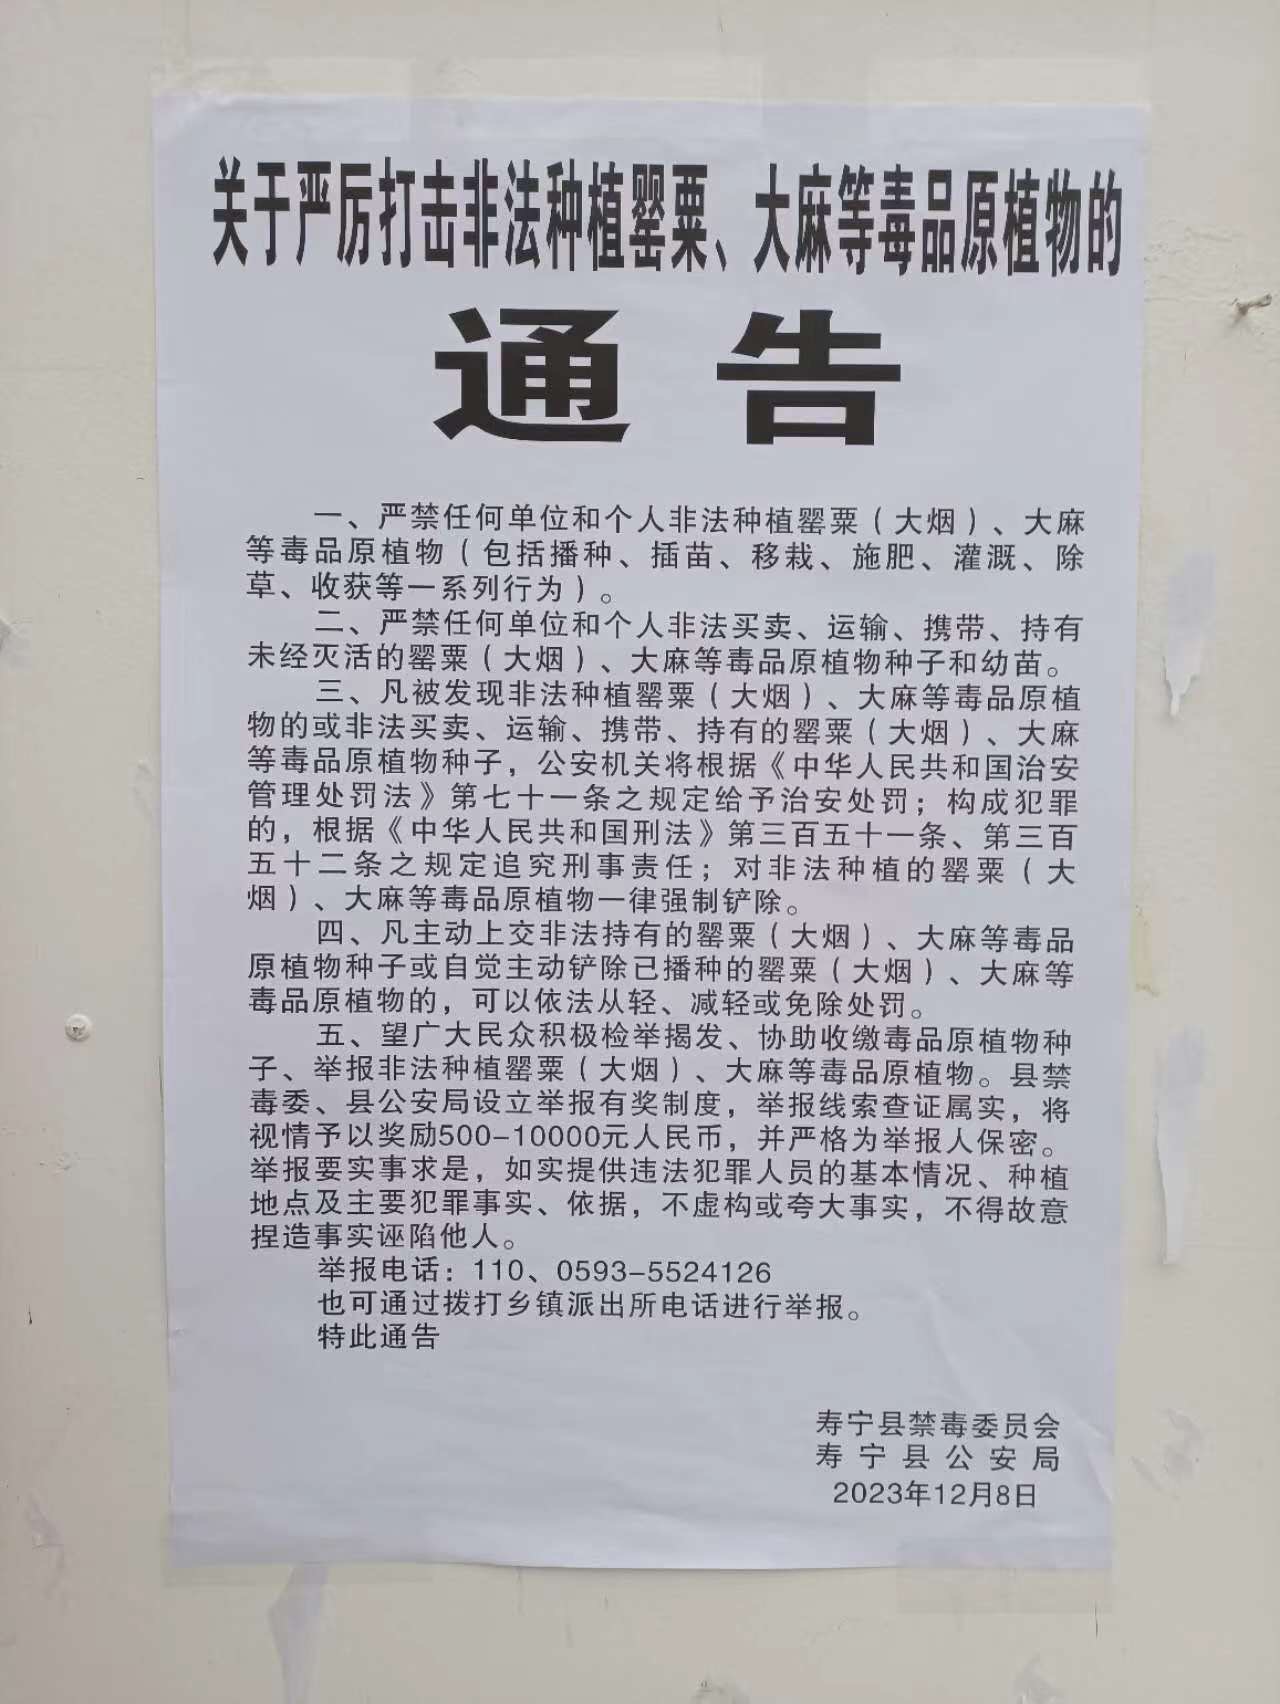 关于严厉打击非法种植罂粟、大麻等毒品原植物的
通告
一、严禁任何单位和个人非法种植罂粟（大烟）、大麻
等毒品原植物（包括播种、插苗、移栽、施肥、灌溉、除
草、收获等一系列行为）。
二、严禁任何单位和个人非法买卖、运输、携带、持有
未经灭活的罂粟（大烟）、大麻等毒品原植物种子和幼苗。
三、凡被发现非法种植罂粟（大烟）、大麻等毒品原植
物的或非法买卖、运输、携带、持有的罂粟（大烟）、大麻
等毒品原植物种子，公安机关将根据《中华人民共和国治安
管理处罚法》第七十一条之规定给予治安处罚；构成犯罪
的，根据《中华人民共和国刑法》第三百五十一条、第三百
五十二条之规定追究刑事责任；对非法种植的罂粟（大
烟）、大麻等毒品原植物一律强制铲除。
四、凡主动上交非法持有的罂粟（大烟）、大麻等毒品
原植物种子或自觉主动铲除已播种的罂粟（大烟）、大麻等
毒品原植物的，可以依法从轻、减轻或免除处罚。
五、望广大民众积极检举揭发、协助收缴毒品原植物种
子、举报非法种植罂粟（大烟）、大麻等毒品原植物。县禁
毒委、县公安局设立举报有奖制度，举报线索查证属实，将
视情予以奖励500-10000元人民币，并严格为举报人保密。
举报要实事求是，如实提供违法犯罪人员的基本情况、种植
地点及主要犯罪事实、依据，不虚构或夸大事实，不得故意
捏造事实诬陷他人。
举报电话：110、0593-5524126
也可通过拨打乡镇派出所电话进行举报。
特此通告
寿宁县禁毒委员会
寿宁县公安局
2023年12月8日